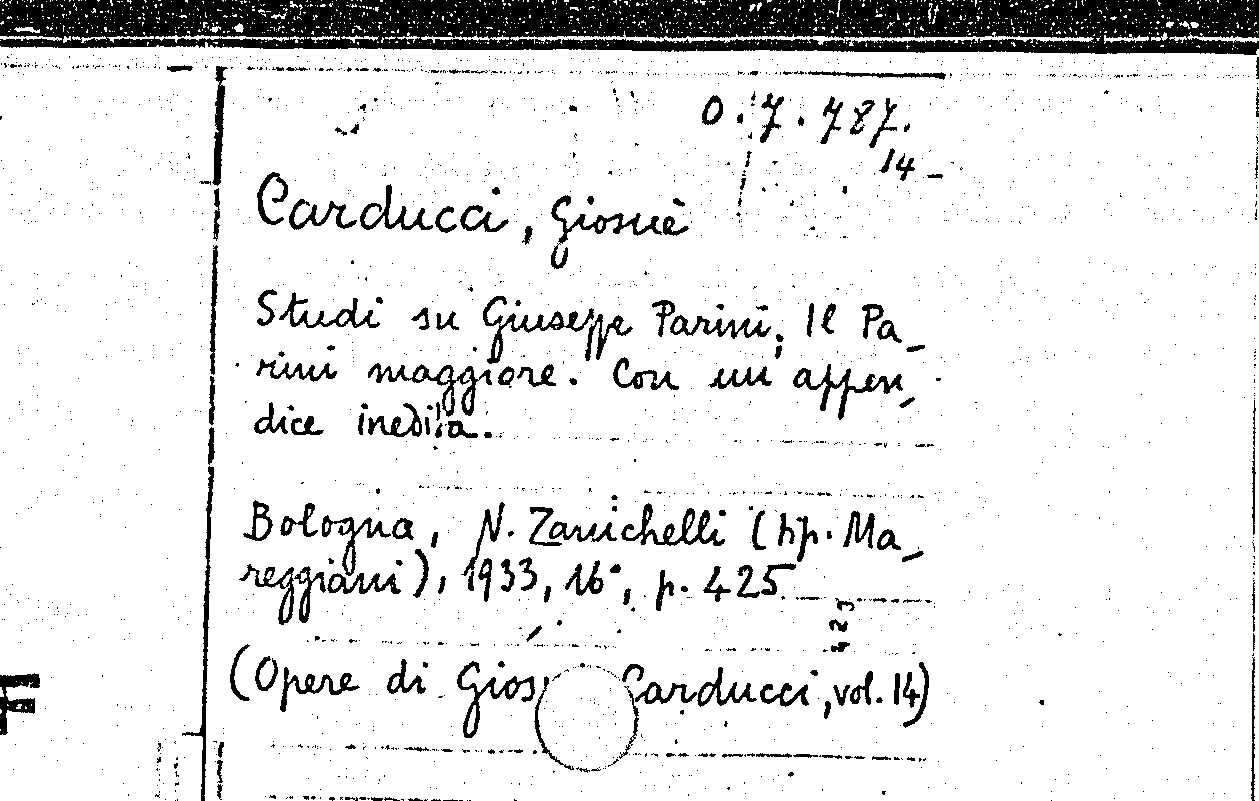 0.7.787.
14-
Carducci, Giosuè
Studi su Giuseppe Parini; Il Pa-
rini maggiore. Con un' appen-
dice inedita.
Bologna, N. Zanichelli (tip. Ma-
reggiani), 1933, 16°, p. 425
(Opere di Gios Carducci, vol. 14)